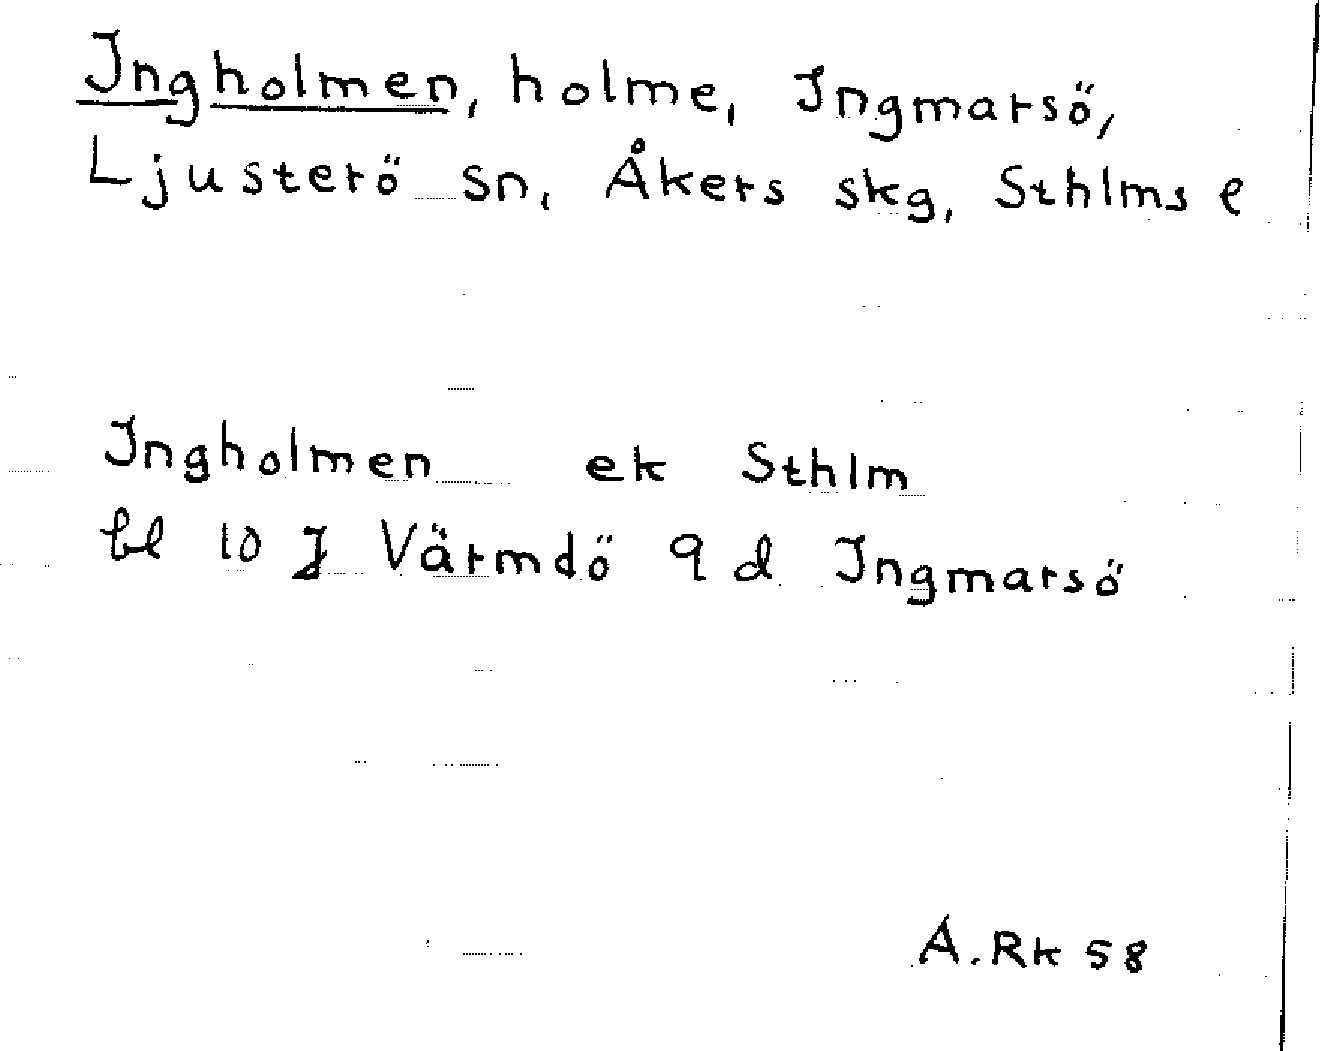 Ingholmen, holme, Ingmarsö,
Ljusterö sn, Åkers skg, Sthlms l
Ingholmen ek Sthlm
bl 10 J Värmdö 9 d Ingmarsö
A. Rk 58